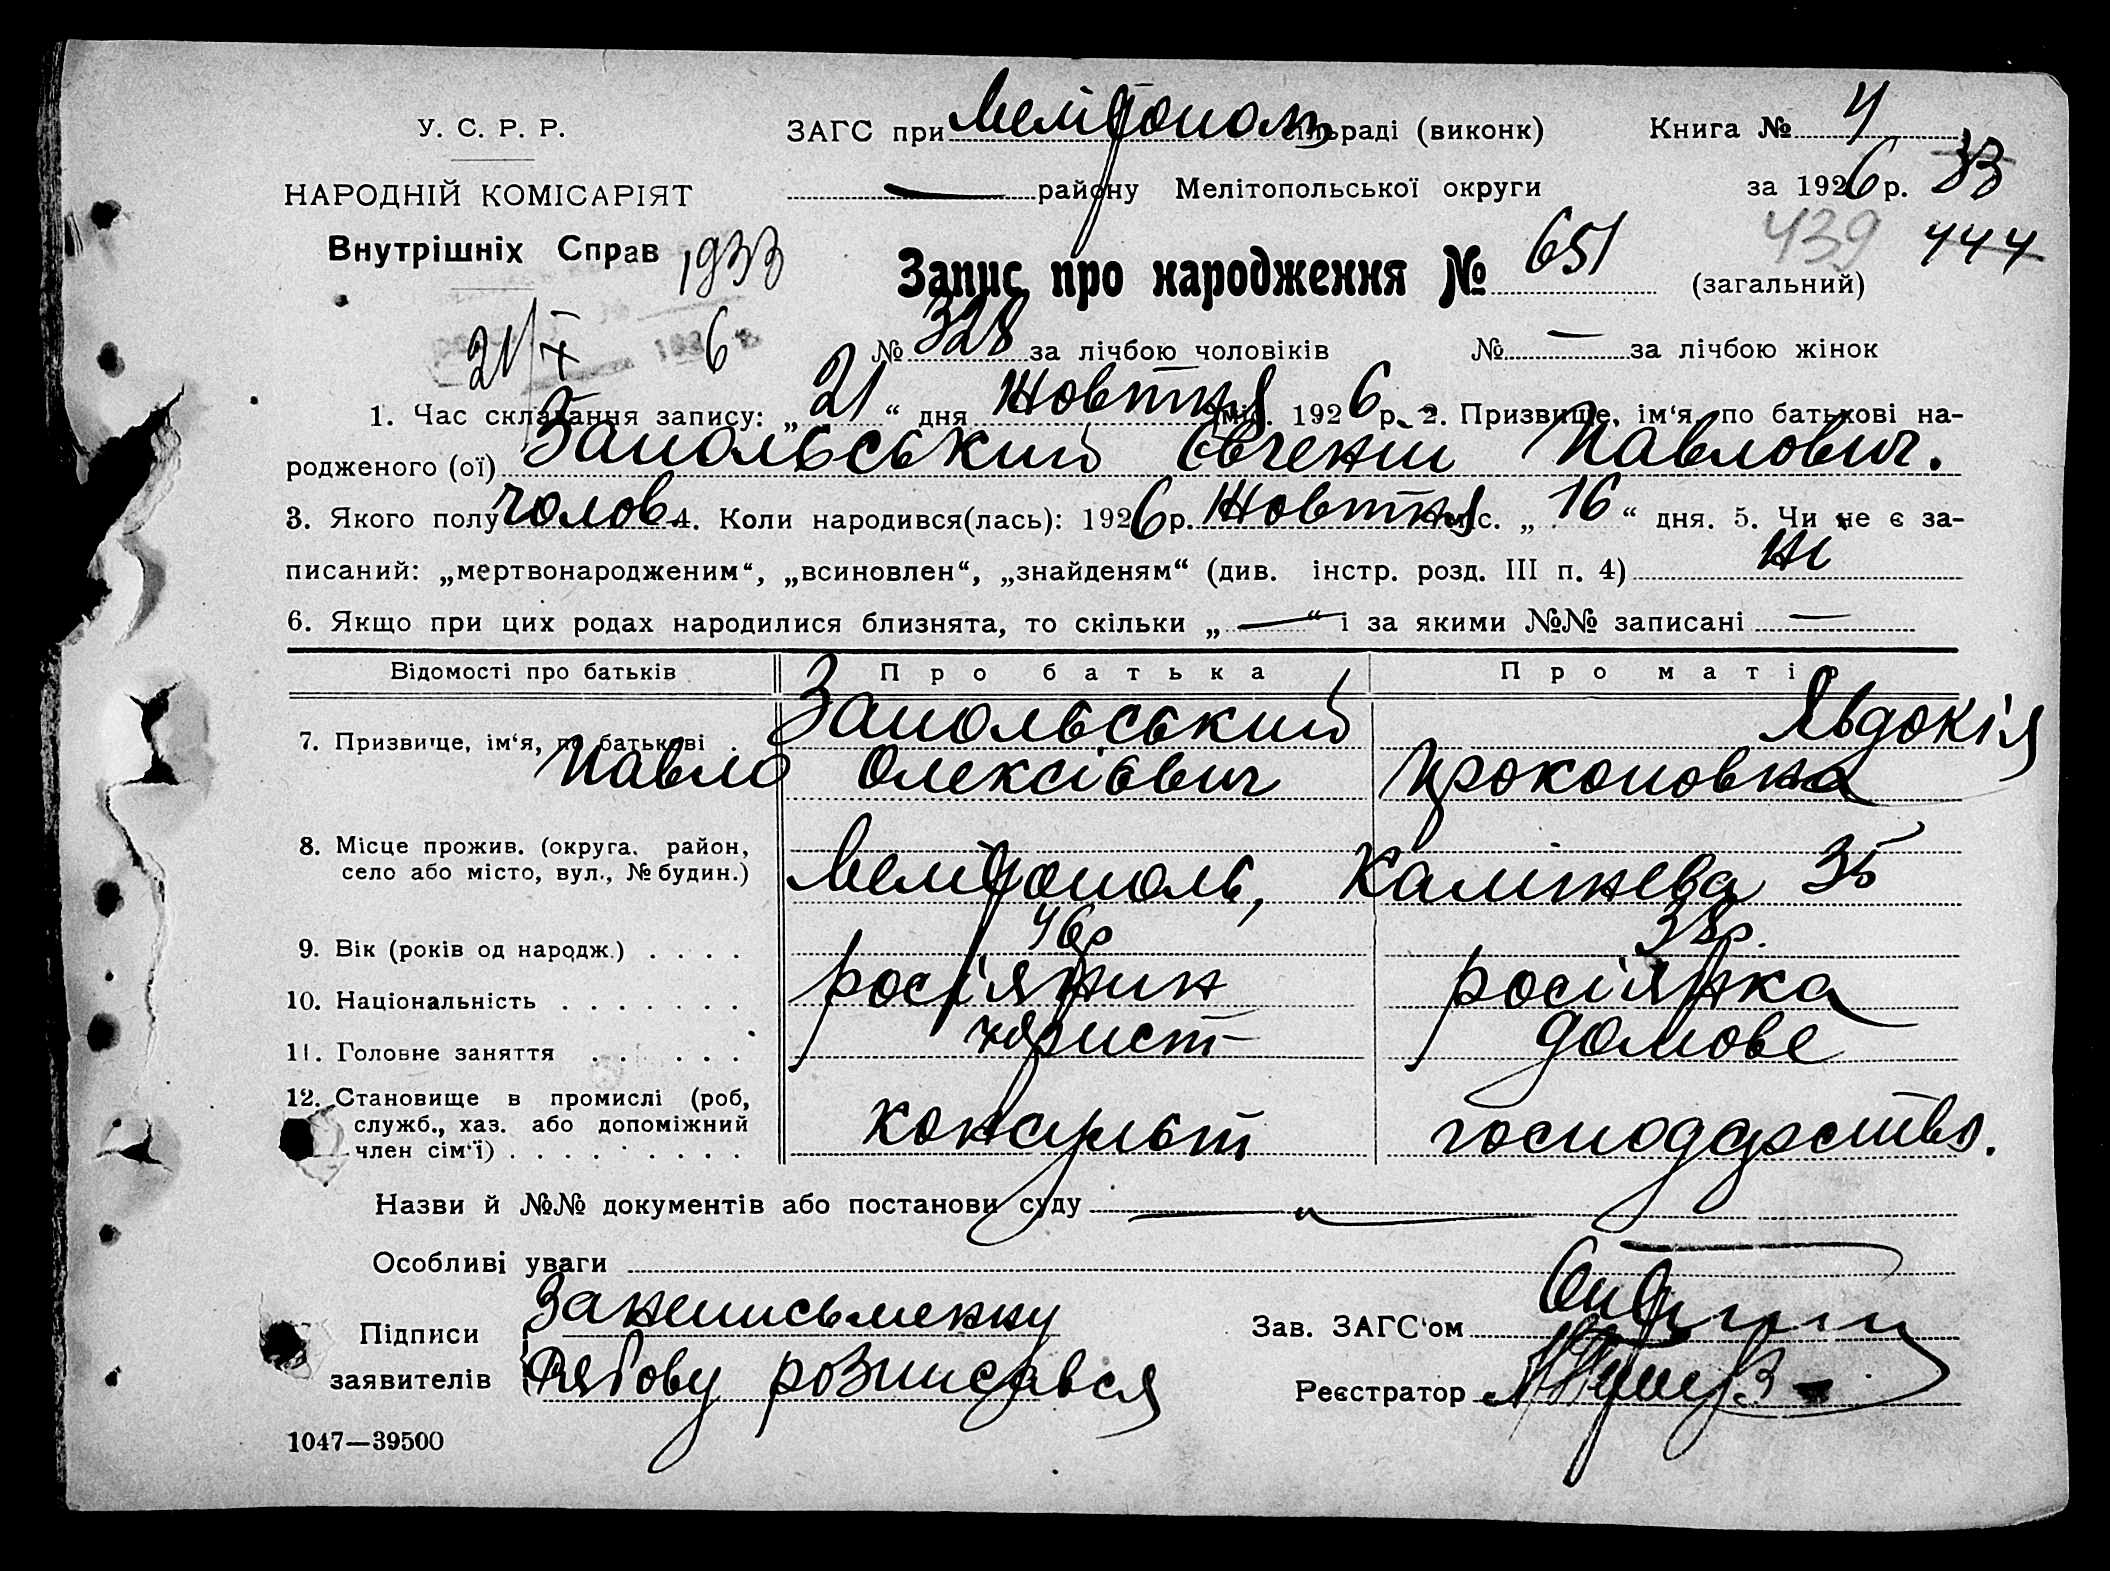 У. С. Р. Р.
НАРОДНІЙ КОМІСАРІЯТ
Внутрішніх Справ
1933
21/X 6
ЗАГС при Мелітополь сільраді (виконк) Книга № 4
— району Мелітопольської округи за 1926 р. 33
439 444
Запис про народження № 651 (загальний)
№ 328 за лічбою чоловіків № — за лічбою жінок
1. Час складання запису: „21“ дня Жовтня міс. 1926 р. 2. Призвище, ім‘я, по батькові на-
родженого (ої) Запольський Євгеній Павлович.
3. Якого полу чолов. 4. Коли народився(лась): 1926 р. Жовтня міс. „16“ дня. 5. Чи не є за-
писаний: „мертвонародженим“, „всиновлен“, „знайденям“ (див. інстр. розд. III п. 4) ні
6. Якщо при цих родах народилися близнята, то скільки „—“ і за якими №№ записані —
Відомості про батьків Про батька Про матір
7. Призвище, ім‘я, по батькові . Запольський Явдокія
Павло Олексієвич Прокоповна
8. Місце прожив. (округа, район,
село або місто, вул., № будин.) Мелітополь, Калінева 35
9. Вік (років од народж.) . . . . 46р 38р.
10. Національність . . . . . . . росіянин росіянка
11. Головне заняття . . . . . . юрист домове
12. Становище в промислі (роб,
служб., хаз. або допоміжний
член сім‘ї) . . . . . . . . . . консульт господарство.
Назви й №№ документів або постанови суду —
Особливі уваги —
Підписи
заявителів
За неписьменну
розписався
Зав. ЗАГС‘ом
Реєстратор
1047—39500